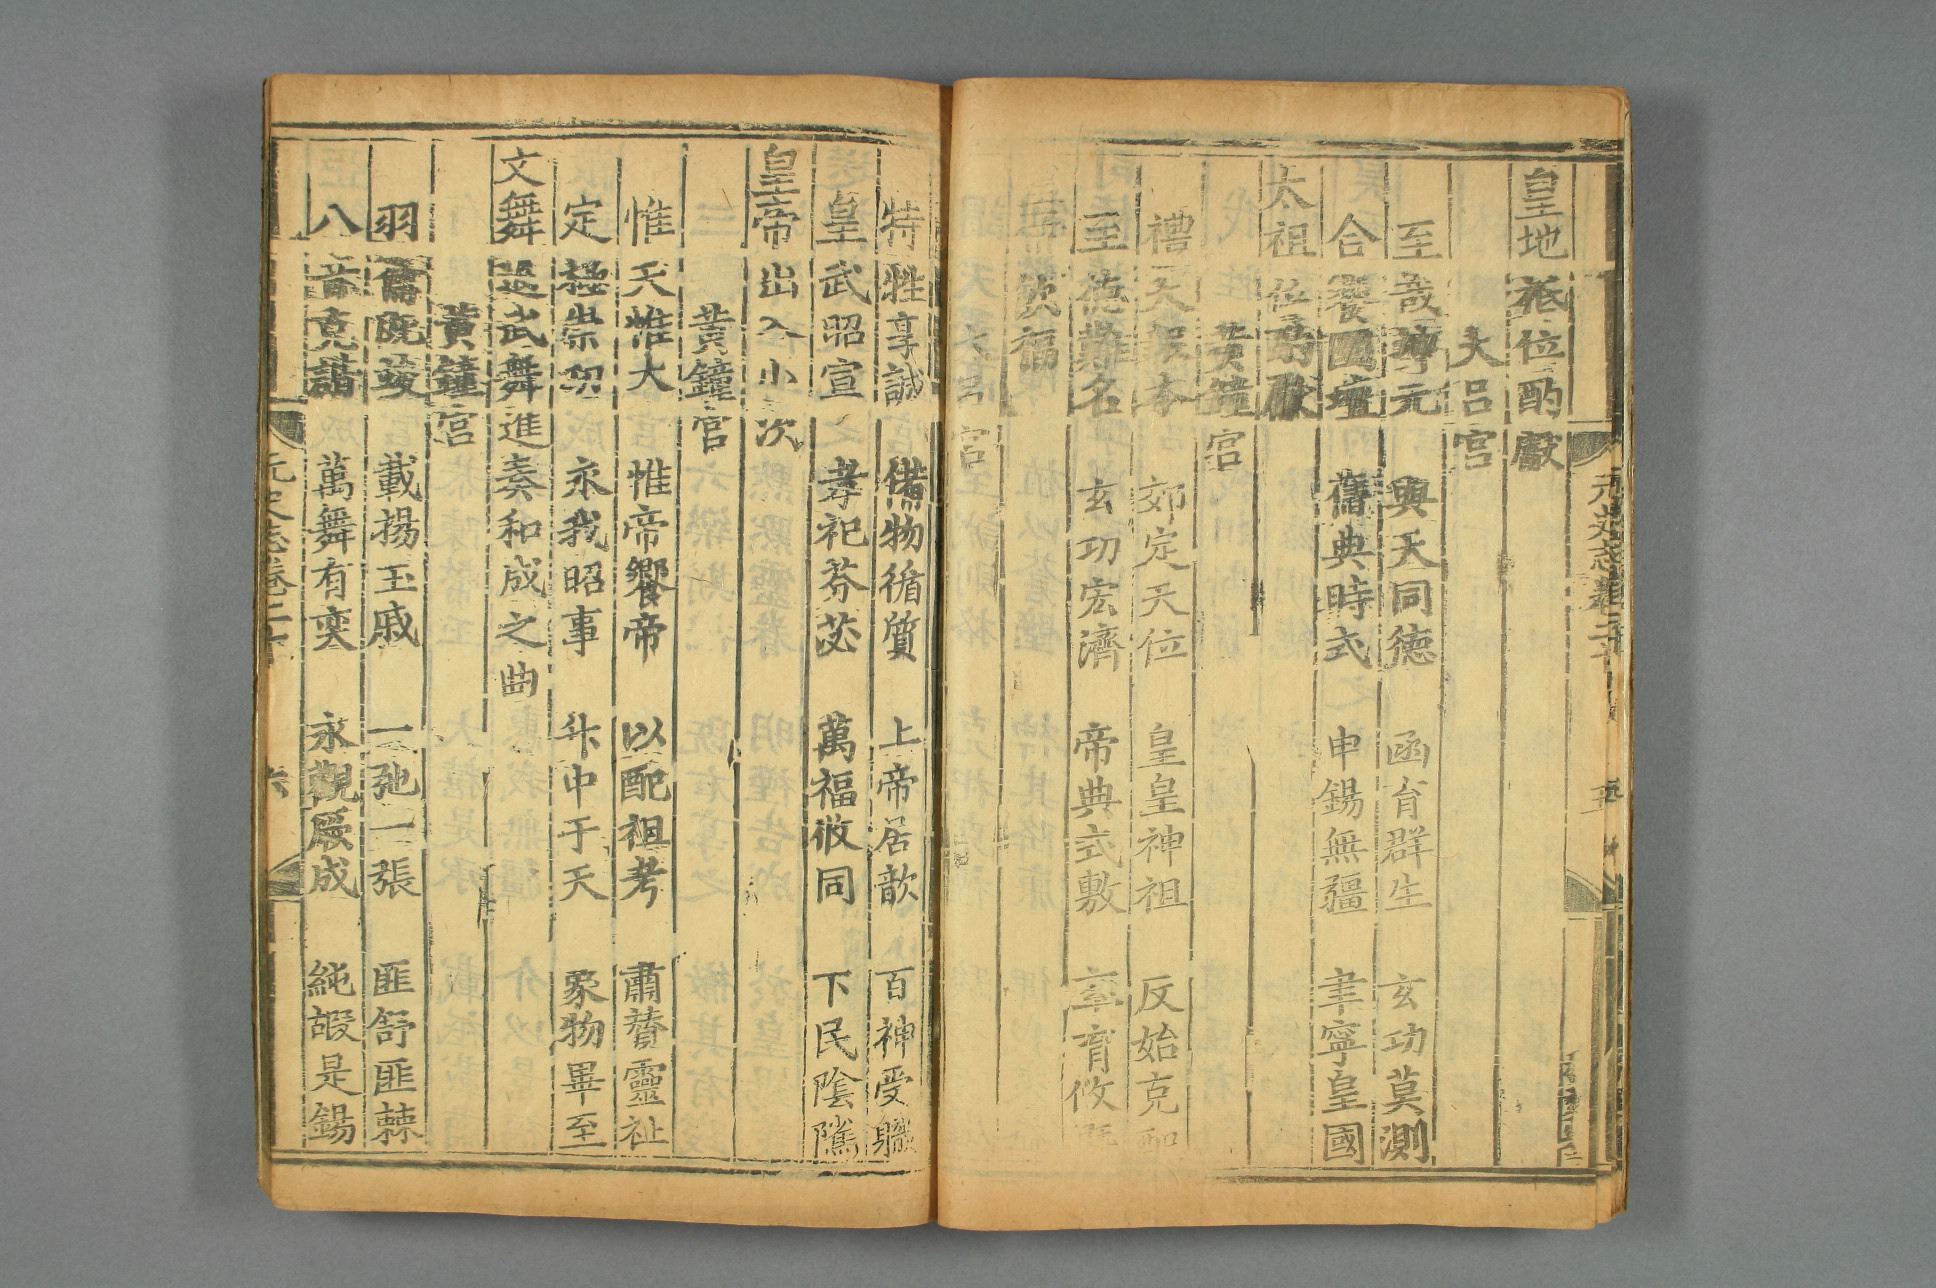 皇地祇位酌獻
大呂宮
至哉尊元　與天同德　函育群生　玄功莫測
合饗圜壇　舊典時式　申錫無疆　聿寧皇國
太祖位酌獻
黃鐘宮
禮大報本　郊定天位　皇皇神祖　反始克配
至德難名　玄功宏濟　帝典式敷　率育攸
飲福
大呂宮
特牲享誠　備物循質　上帝居歆　百神受職
皇武昭宣　孝祀芬苾　萬福攸同　下民陰隲
皇帝出入小次
黃鐘宮
惟天惟大　惟帝饗帝　以配祖考　肅贊靈祉
定極崇功　永我昭事　升中于天　象物畢至
文舞退武舞進奏和成之曲
黃鐘宮
羽籥旣竣　載揚玉戚　一弛一張　匪舒匪棘
八音克諧　萬舞有奕　永觀厥成　純嘏是錫
元史志卷二十　六